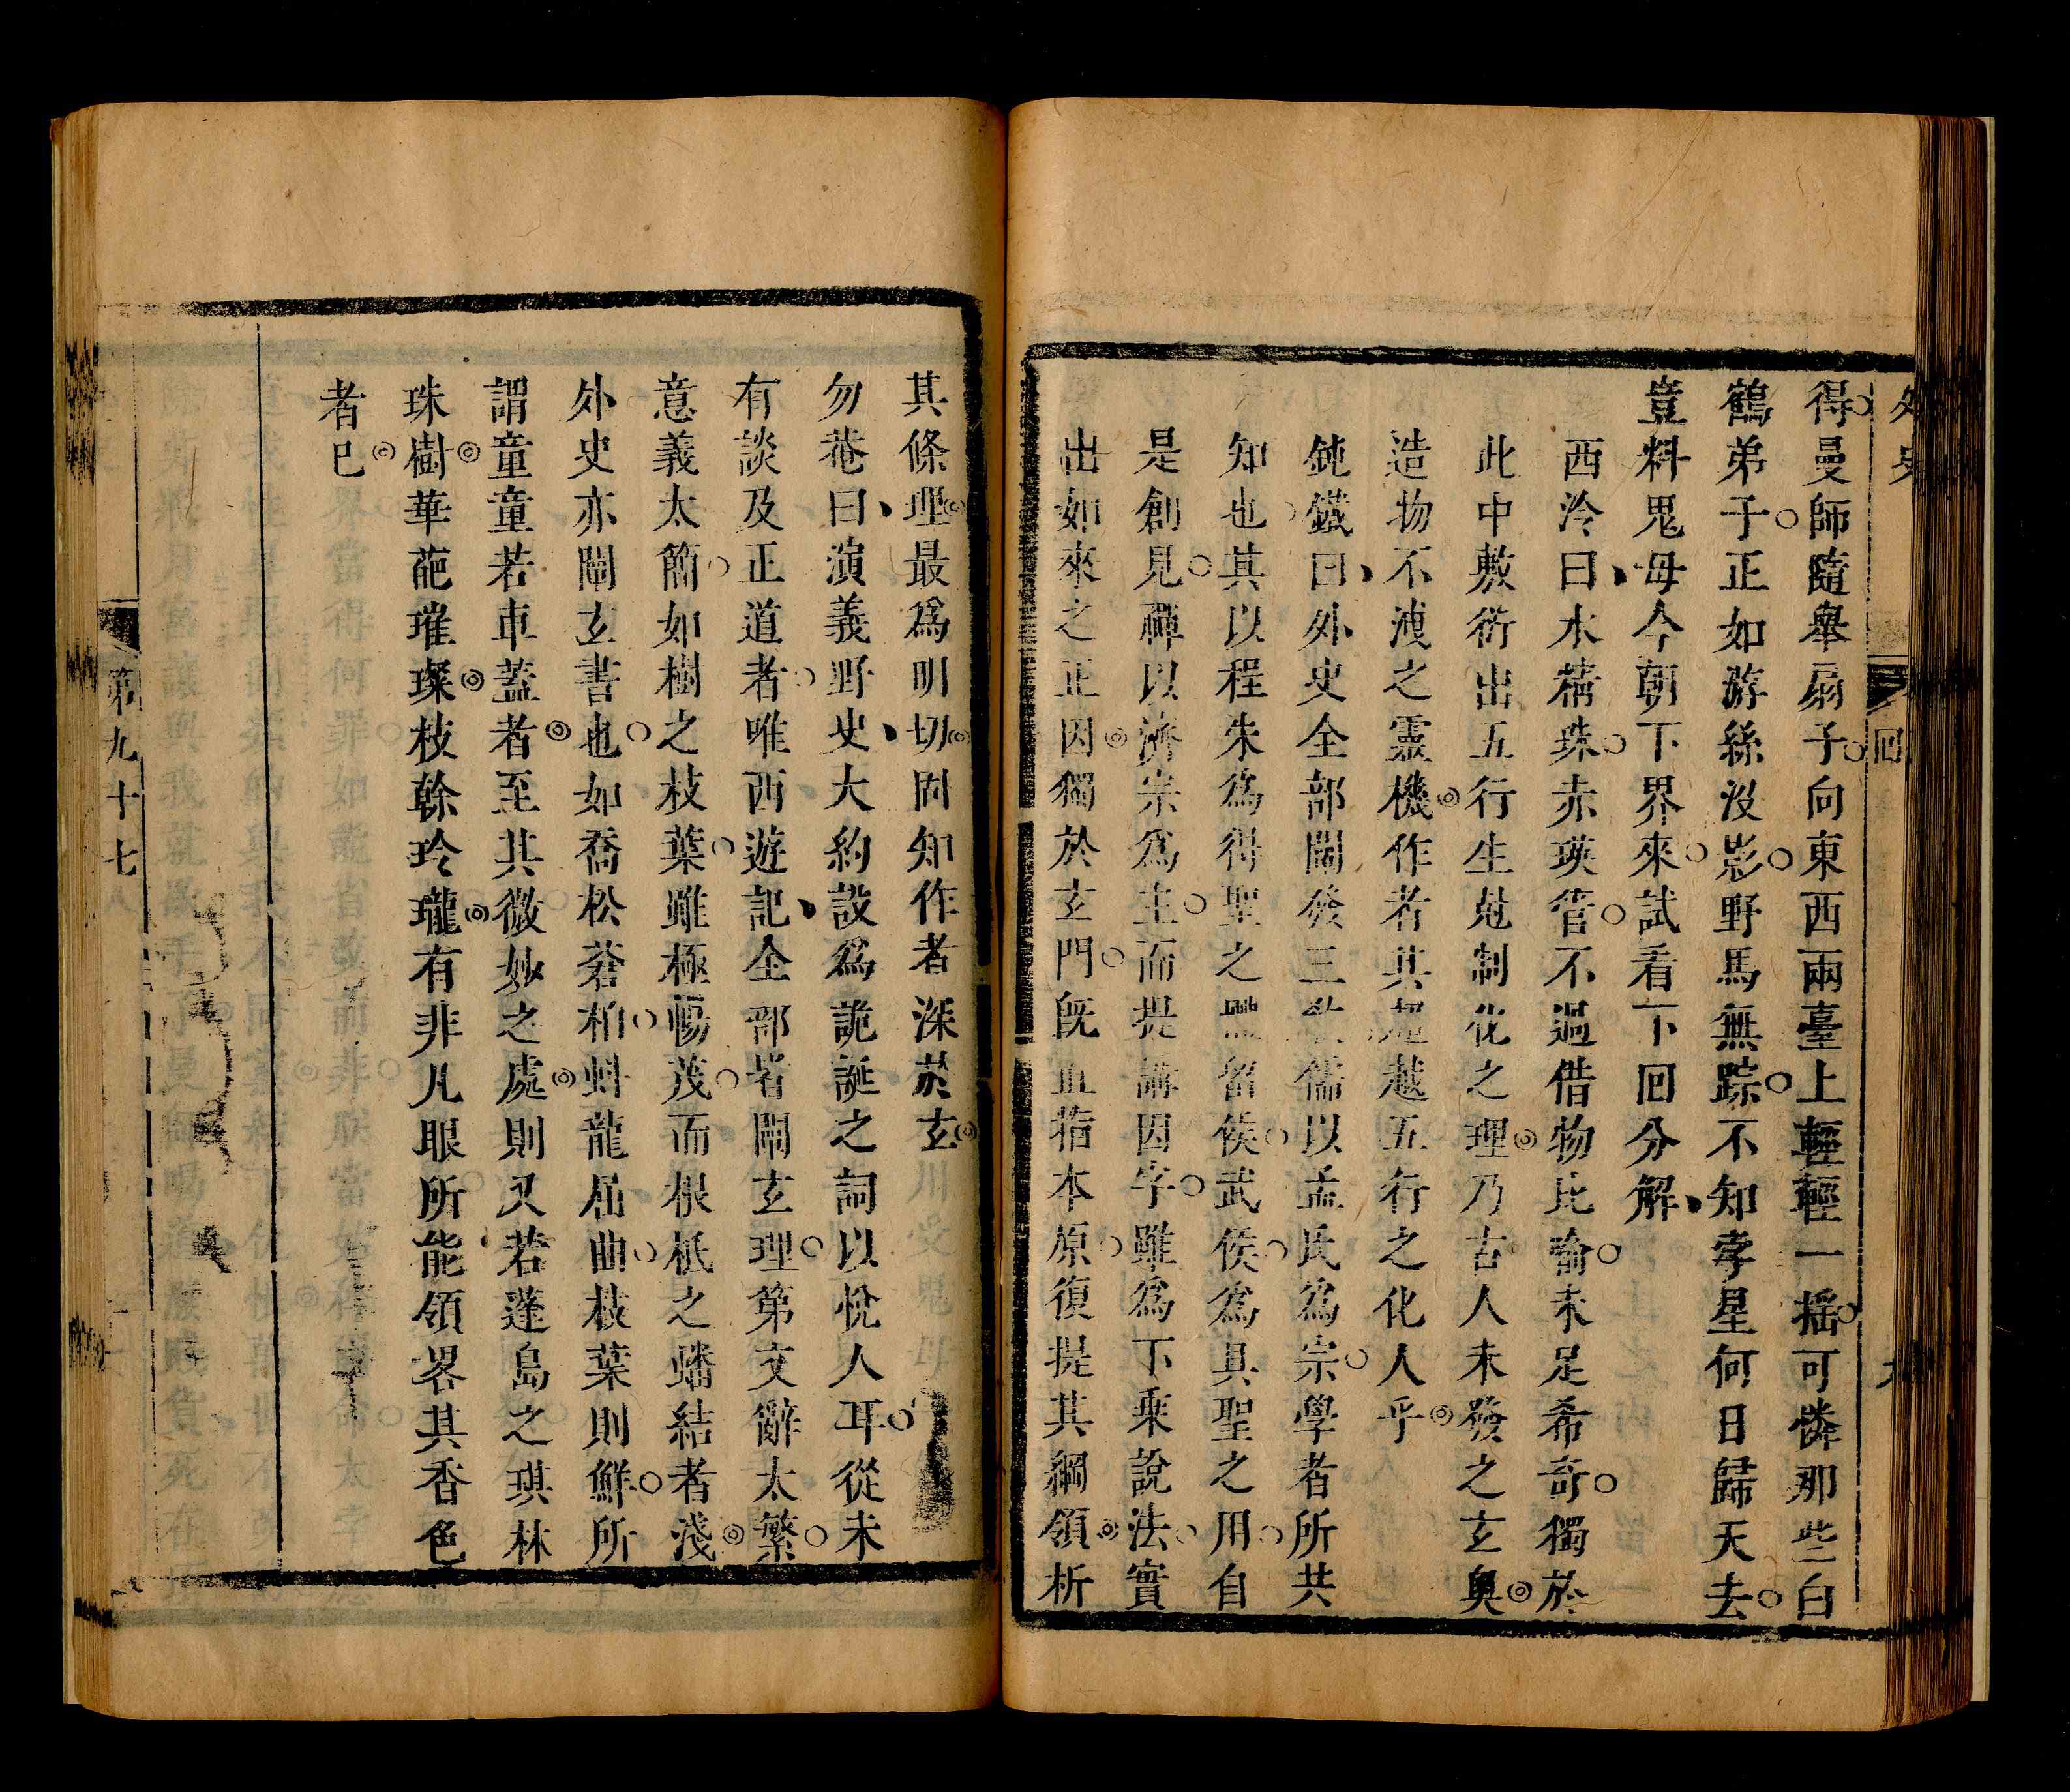 外史
回
九
得曼師隨舉扇子向東西兩臺上輕輕一搖可憐那些白
鶴弟子正如游絲沒影野馬無踪不知孛星何日歸天去
豈料鬼母今朝下界來試看下回分解
西泠曰木樨珠赤瑛管不過借物比喻未足希奇獨於
此中敷衍出五行生尅制化之理乃古人未發之玄奧
造物不洩之靈機作者其超越五行之化人乎
鈍鐵曰外史全部闡發三教儒以孟氏為宗學者所共
知也其以程朱為得聖之 留侯武侯為具聖之用自
是創見禪以濟宗為主而提講因字雖為下乘說法實
出如來之正因獨於玄門旣直指本原復提其綱領析
其條理最爲明切固知作者深於玄
勿菴曰演義野史大約設爲詭誕之詞以悅人耳從未
有談及正道者唯西遊記全部皆闡玄理第文辭太繁
意義太簡如樹之枝葉雖極暢茂而根柢之蟠結者淺
外史亦闡玄書也如喬松蒼柏虯龍屈曲枝葉則鮮所
謂童童若車蓋者至其微妙之處則又若蓬島之琪林
珠樹華葩璀璨枝幹玲瓏有非凡眼所能領畧其香色
者已
第九十七